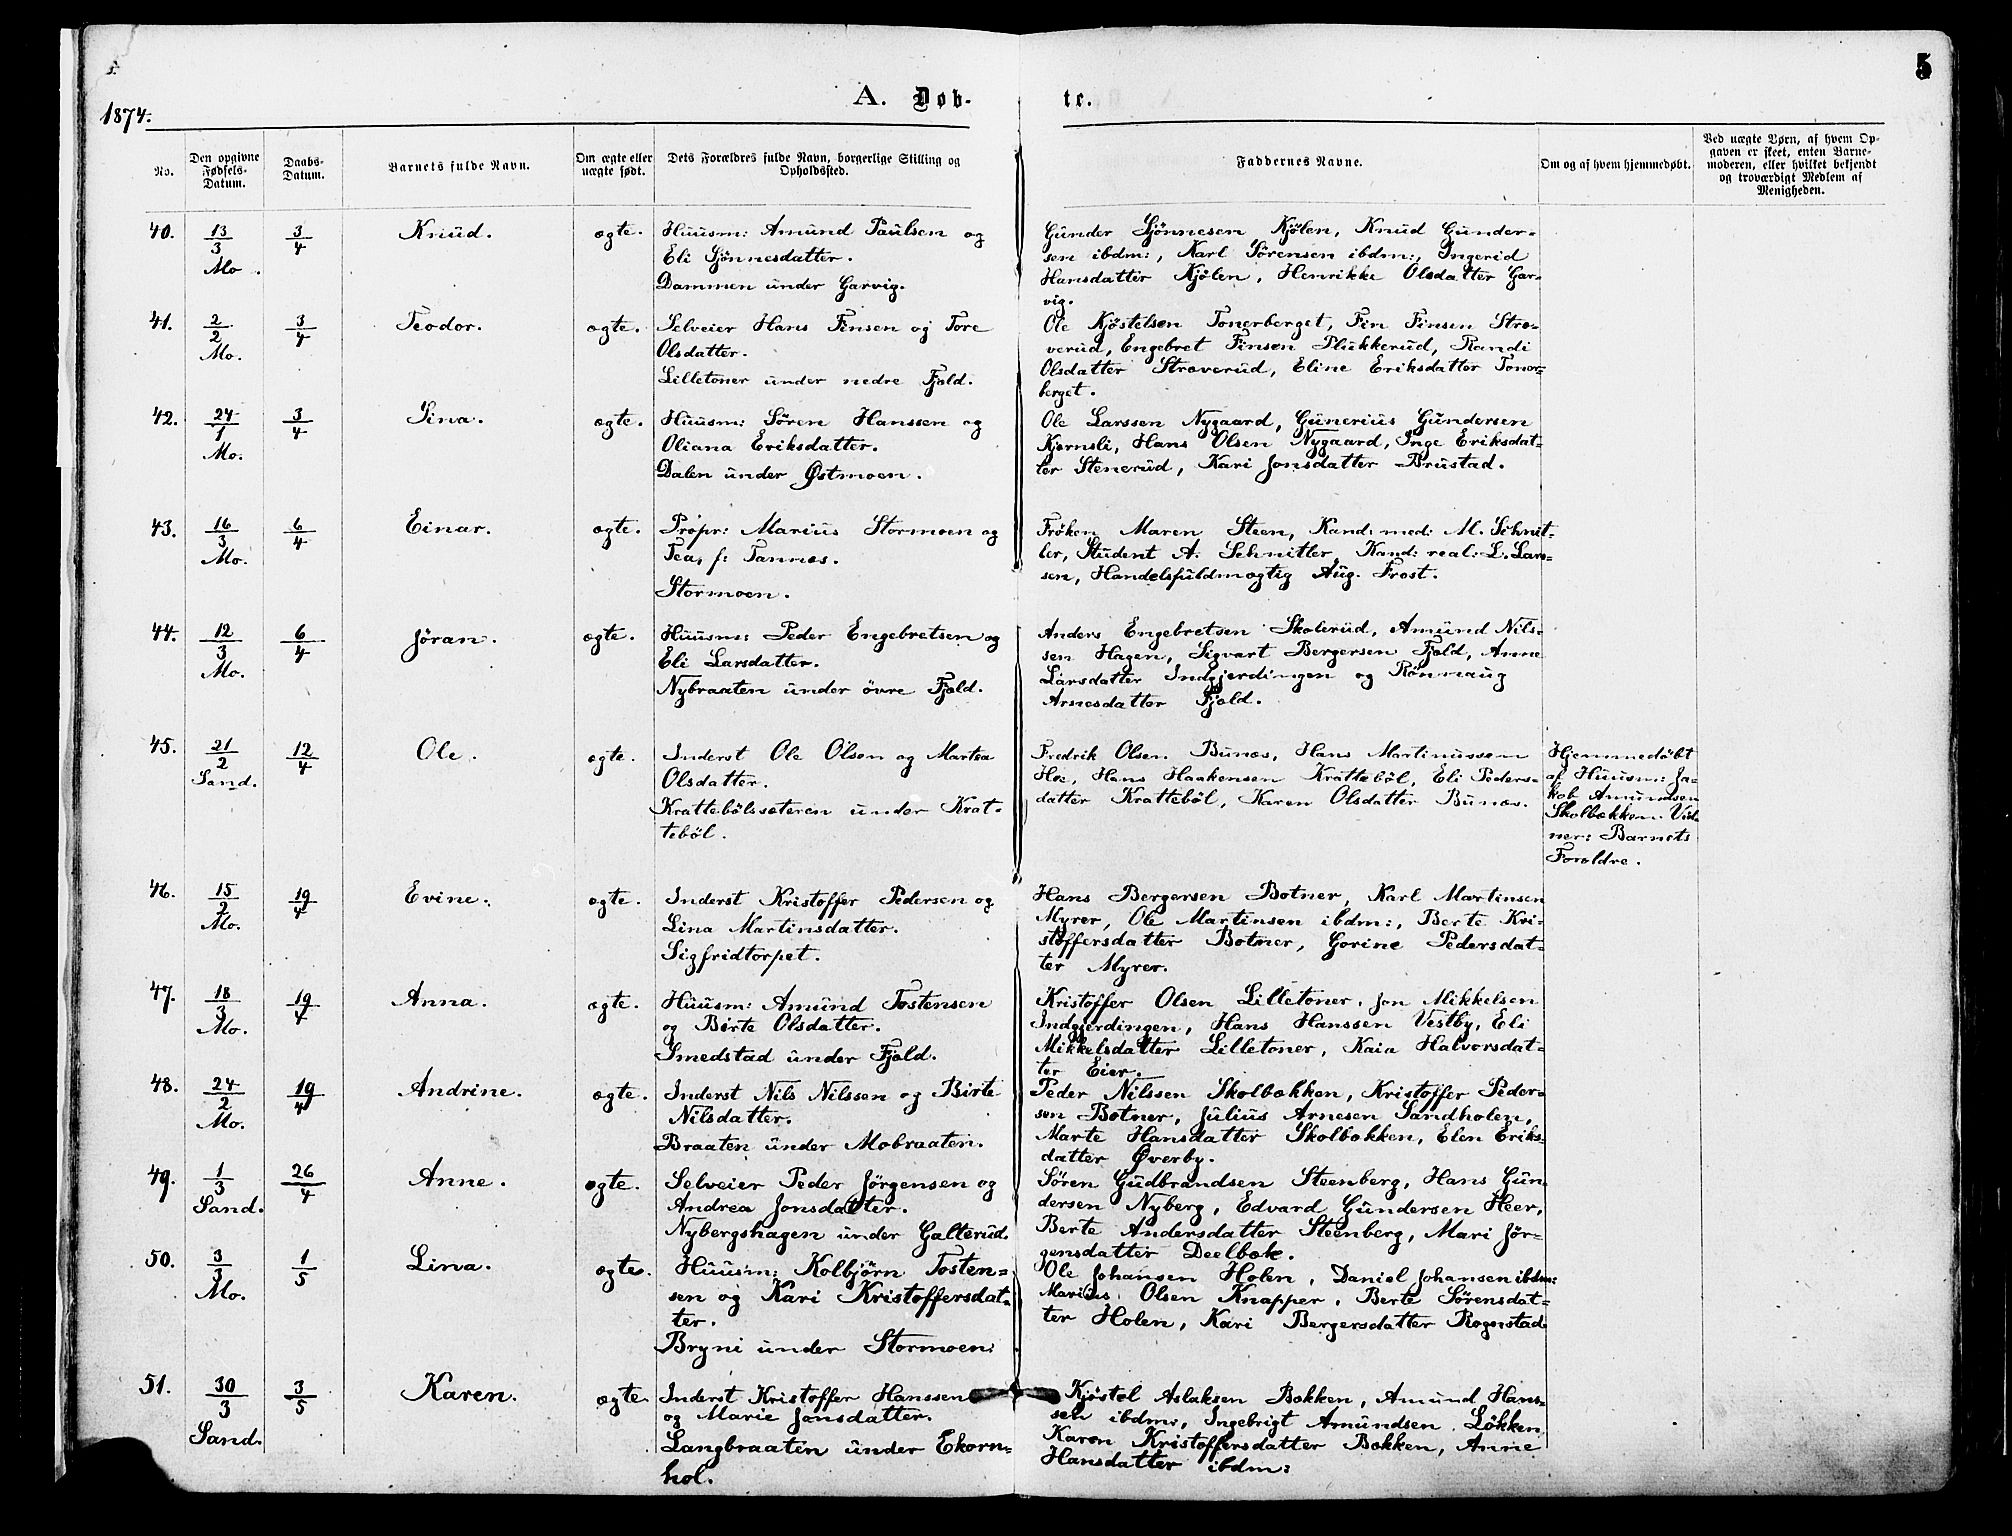 5
1874.
A. Døb-
te.
No.
Den opgivne Fødsels-Datum.
Daabs-Datum.
Barnets fulde Navn.
Om ægte eller uægte født.
Dets Forældres fulde Navn, borgerlige Stilling og Opholdssted.
Faddernes Navne.
Om og af hvem hjemmedøbt.
Ved uægte Børn, af hvem Op-
gaven er skeet, enten Barne-
moderen, eller hvilket bekjendt
og troværdigt Medlem af
Menigheden.
40. 13/3 Mo. 3/4 Knud. ægte.
Huusm: Amund Paulsen og
Eli Gjönnesdatter.
Dammen under Garvig.
Gunder Gjönnesen Kjölen, Knud Gunder-
sen ibdm:, Karl Sörensen ibdm:, Ingerid
Hansdatter Kjölen, Henrikke Olsdatter Gar-
vig.
41. 2/2 Mo. 3/4 Teodor. ægte.
Selveier Hans Finsen og Tore
Olsdatter.
Lilletoner under nedre Fjæld.
Ole Kjöstelsen Tonerberget, Fin Finsen Stræ-
verud, Engebret Finsen Plukkerud, Randi
Olsdatter Stræverud, Eline Eriksdatter Toner-
berget.
42. 24/1 Mo. 3/4 Sina. ægte.
Huusm: Sören Hanssen og
Oliana Eriksdatter.
Dalen under Østmoen.
Ole Larssen Nygaard, Gunerius Gundersen
Kjernsli, Hans Olsen Nygaard, Inge Eriksdat-
ter Stenerud, Kari Jonsdatter Brustad.
43. 16/3 Mo. 6/4 Einar. ægte.
Propr: Marius Stormoen og
Tea, f: Tannæs.
Stormoen.
Fröken Maren Steen, Kand. med: M. Schnit-
ler, Student A. Schnitler, Kand: real: L. Lars-
sen, Handelsfuldmægtig Aug. Frost.
44. 12/3 Mo. 6/4 Jöran. ægte.
Huusm: Peder Engebretsen og
Eli Larsdatter.
Nybraaten under övre Fjæld.
Anders Engebretsen Skolerud, Amund Nils-
sen Hagen, Sigvart Bergersen Fjæld, Anne
Larsdatter Indgjerdingen og Rönnaug
Arnesdatter Fjæld.
45. 21/2 Sand. 12/4 Ole. ægte.
Inderst Ole Olsen og Martea
Olsdatter.
Krattebölssæteren under Krat-
teböl.
Fredrik Olsen Bunæs, Hans Martinussen
Hoe, Hans Haakensen Kratteböl, Eli Peders-
datter Kratteböl, Karen Olsdatter Bunæs.
Hjemmedöbt
af Huusm: Ja-
kob Amundsen
Skolbækken. Vid-
ner: Barnets
Forældre.
46. 15/2 Mo. 19/4 Evine. ægte.
Inderst Kristoffer Pedersen og
Lina Martinsdatter.
Sigfridtorpet.
Hans Bergersen Botner, Karl Martinsen
Myrer, Ole Martinsen ibdm:, Berte Kri-
stoffersdatter Botner, Gorine Pedersdat-
ter Myrer.
47. 18/3 Mo. 19/4 Anna. ægte.
Huusm: Amund Tostensen
og Birte Olsdatter.
Smedstad under Fjæld.
Kristoffer Olsen Lilletoner, Jon Mikkelsen
Indgjerdingen, Hans Hanssen Vestby, Eli
Mikkelsdatter Lilletoner, Kaia Halvorsdat-
ter Eier.
48. 24/2 Mo. 19/4 Andrine. ægte.
Inderst Nils Nilssen og Birte
Nilsdatter.
Braaten under Mobraaten.
Peder Nilssen Skolbækken, Kristoffer Peder-
sen Botner, Julius Arnesen Sandholen,
Marte Hansdatter Skolbækken, Elen Eriks-
datter Øverby.
49. 1/3 Sand. 26/4 Anne. ægte.
Selveier Peder Jörgensen og
Andrea Jonsdatter.
Nybergshagen under Galterud.
Sören Gudbrandsen Steenberg, Hans Gun-
dersen Nyberg, Edvard Gundersen Heer,
Berte Andersdatter Steenberg, Mari Jör-
gensdatter Deelbæk.
50. 3/3 Mo. 1/5 Lina. ægte.
Huusm: Kolbjörn Tosten-
sen og Kari Kristoffersdat-
ter.
Bryni under Stormoen.
Ole Johansen Holen, Daniel Johansen ibdm:
Marius Olsen Knapper, Berte Sörensdat-
ter Holen, Kari Bergersdatter Rogenstad.
51. 30/3 Sand. 3/5 Karen. ægte.
Inderst Kristoffer Hanssen
og Marie Jonsdatter.
Langbraaten under Ekorn-
hol.
Kjöstel Aslaksen Bækken, Amund Hans-
sen ibdm:, Ingebrigt Amundsen Lökken
Karen Kristoffersdatter Bækken, Anne
Hansdatter ibdm: